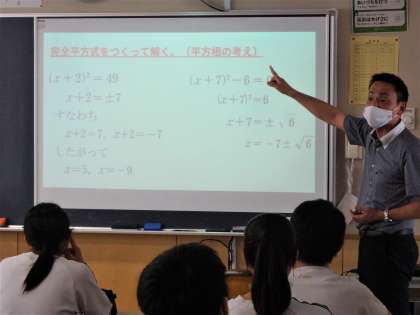 完全平方式をつくって解く。（平方根の考え）
(x+2)²=49
x+2=±7
すなわち
x+2=7, x+2=-7
したがって
x=5, x=-9
(x+7)²-6=
(x+7)²=6
x+7=±√6
x=-7±√6